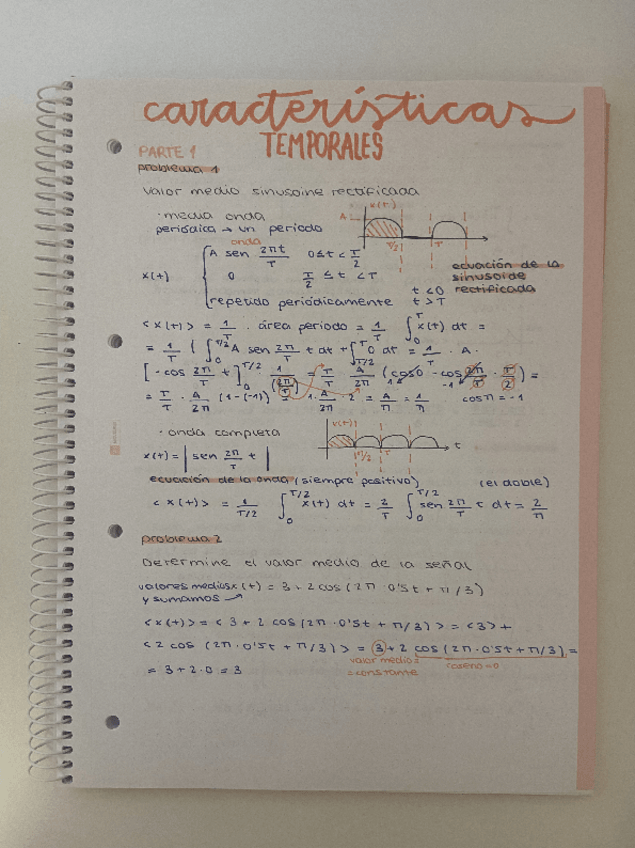 características
TEMPORALES
PARTE 1
problema 1
Valor medio sinusoine rectificada
· media onda
periódica → un periodo
x(t)
A
T/2
T
onda
x(t) { A sen 2πt/T 0≤t<T/2
0 T/2 ≤t <T
repetido periódicamente t<0 t>T
ecuación de la
sinusoide
rectificada
<x(t)> = 1/T · área periodo = 1/T ∫₀ᵀ x(t) dt =
= 1/T ( ∫₀^T/2 A sen 2π/T t dt + ∫_T/2^T 0 dt = 1/T · A ·
[-cos 2π/T t]₀^T/2 1/(2π/T) = T/T A/2π (cos0 - cos 2π/T · T/2) =
1 -1
= T/T · A/2π (1-(-1)) = 1·A/2π · 2 = A/π = 1/π cosπ = -1
· onda completa
x(t)
T/2 T t
x(t) = | sen 2π/T t |
ecuación de la onda (siempre positivo) (el doble)
<x(t)> = 1/T/2 ∫₀^T/2 x(t) dt = 2/T ∫₀^T/2 sen 2π/T t dt = 2/π
problema 2
Determine el valor medio de la señal
valores medios x(t) = 3 + 2 cos (2π · 0'5t + π/3)
y sumamos
<x(t)> = <3 + 2 cos (2π · 0'5t + π/3)> = <3> +
<2 cos (2π · 0'5t + π/3)> = 3 + 2 cos (2π · 0'5t + π/3) =
valor medio = coseno=0
= constante
= 3 + 2·0 = 3